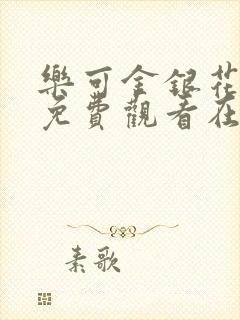 樂可金銀花
免費觀看在
素歌